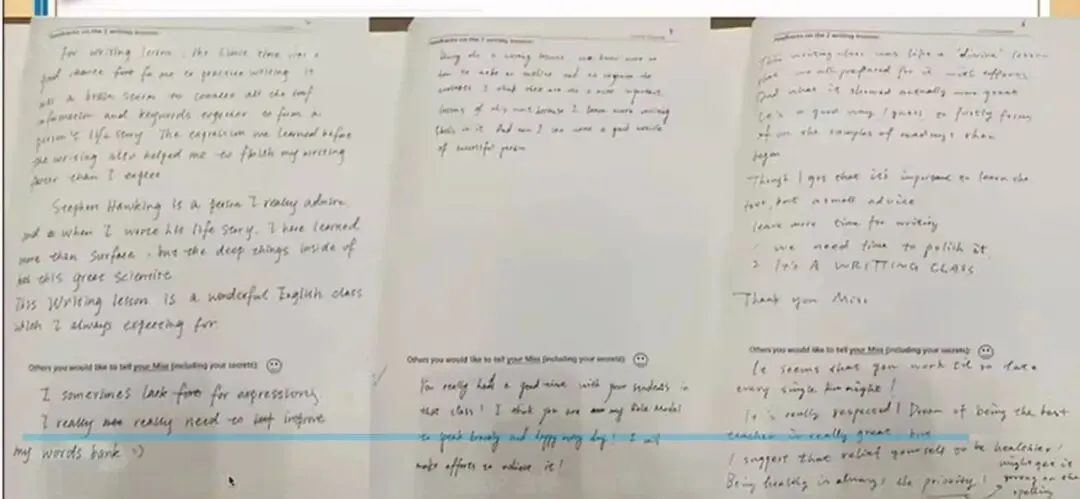 Feedbacks on the 2 writing lessons
For writing lesson, the 
good chance for me to practice writing. It
was a brain storm to connect all the
information and keywords together to form a
person's life story. The expression we learned before
the writing also helped me to finish my writing
faster than I expect
Stephen Hawking is a person I really admire
and when I wrote his life story, I have learned
more than surface, but the deep things inside of
this great scientist
This Writing lesson is a wonderful English class
which I always expecting for.
Others you would like to tell your Miss (including your secrets):
I sometimes lack for expressions
I really really need to improve
my words bank :)
Feedbacks on the 2 writing lessons
to make an outline and to organize the
sentences I think they are the most important
lessons of this unit because I learn more writing
skills in it. And now I can write a good article
of successful person
Others you would like to tell your Miss (including your secrets):
You really had a good time with your students in
that class! I think you are my Role Model
to speak bravely and happy every day! I will
make efforts to achieve it!
Feedbacks on the 2 writing lessons
This writing class was like a "divine" lesson
that we all prepared for it with efforts
And what it showed actually was great
It's a good way I guess to firstly focus
on the samples of readings then
began
Though I got that it's important to learn the
text, but a small advice
leave more time for writing
1 we need time to polish it.
2 It's A WRITTING CLASS
Thank you Miss
Others you would like to tell your Miss (including your secrets):
It seems that you work til so late
every single night!
It is really respected! Dream of being the best
teacher is really great but
I suggest that relief yourself to be healthier!
Being healthy is always the priority!
might get it
wrong on the
spelling